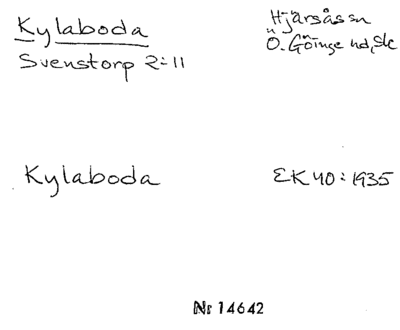 Kylaboda
Hjärsås sn
Svenstorp 2:11
Ö. Göinge hd, Sk
Kylaboda
EK 40: 1935
Nr 14642